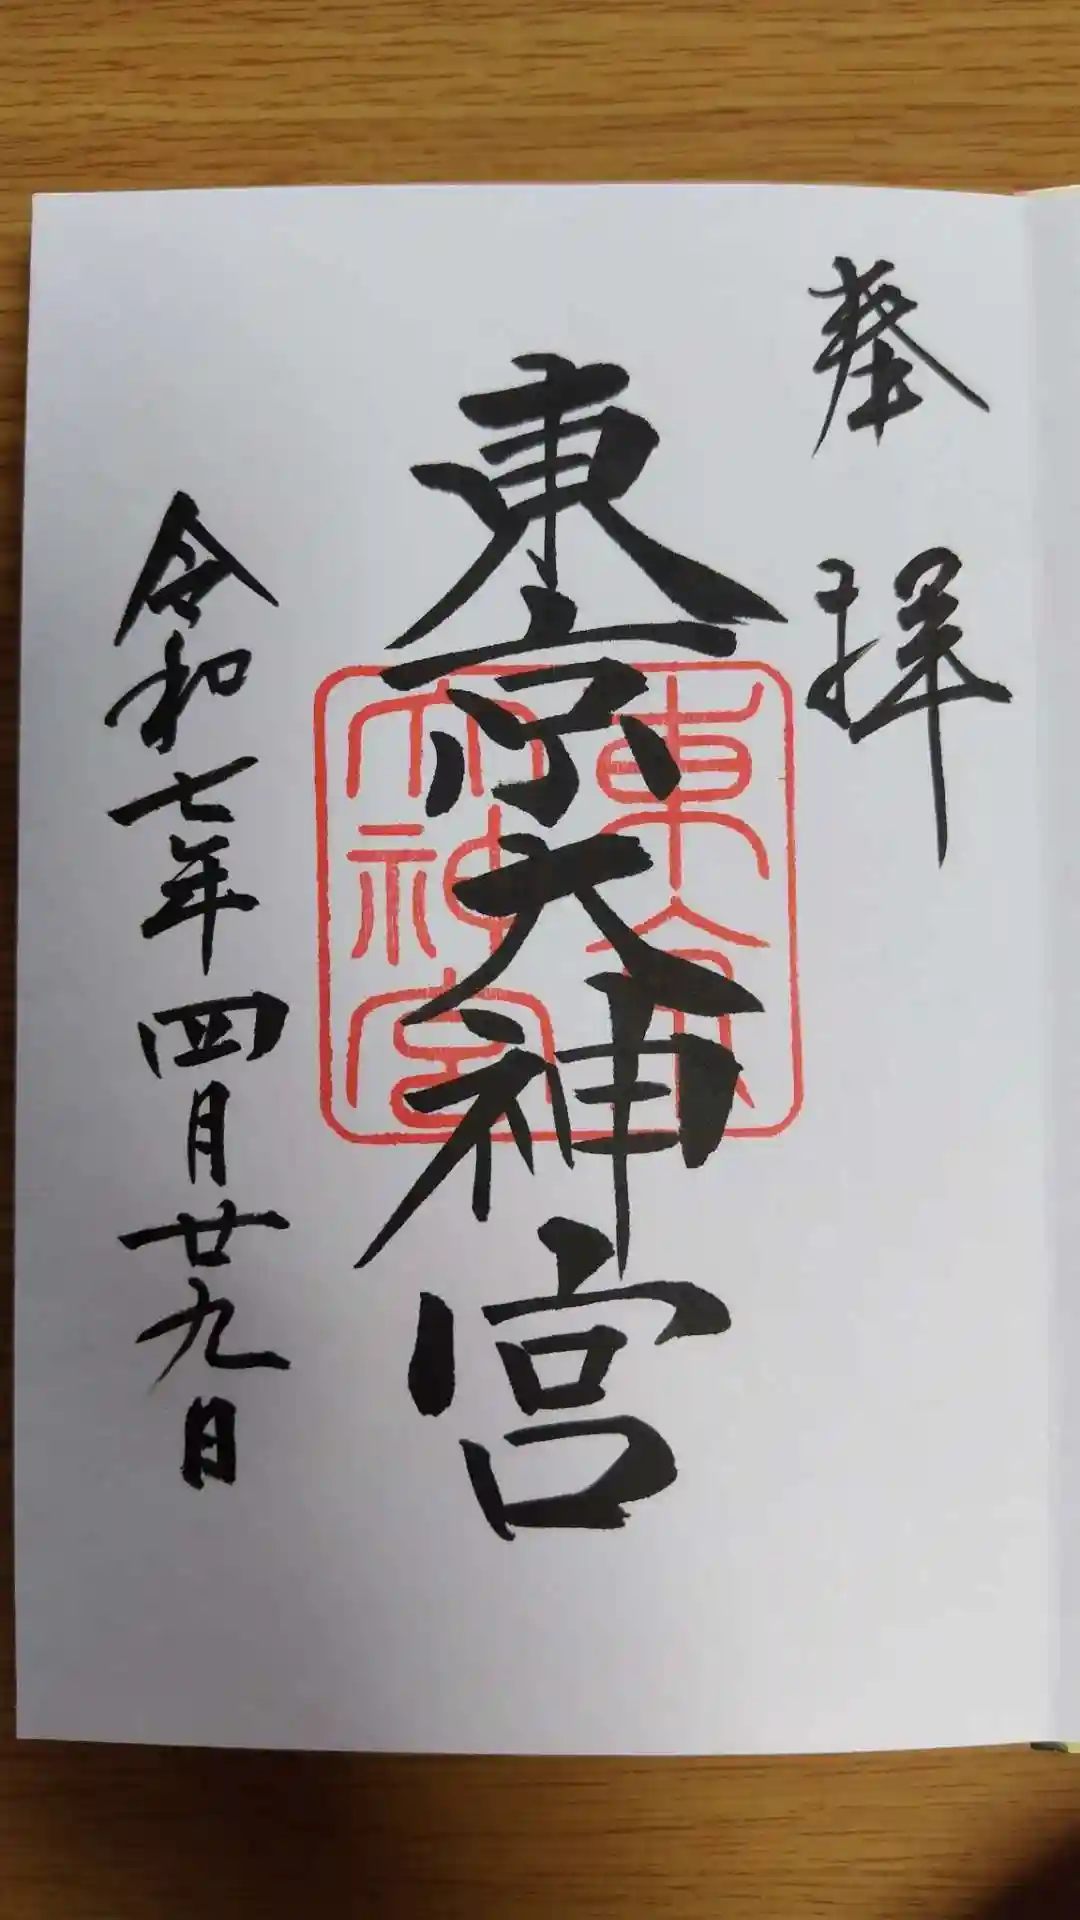 奉拝
東京大神宮
東京
大神宮
令和七年四月廿九日